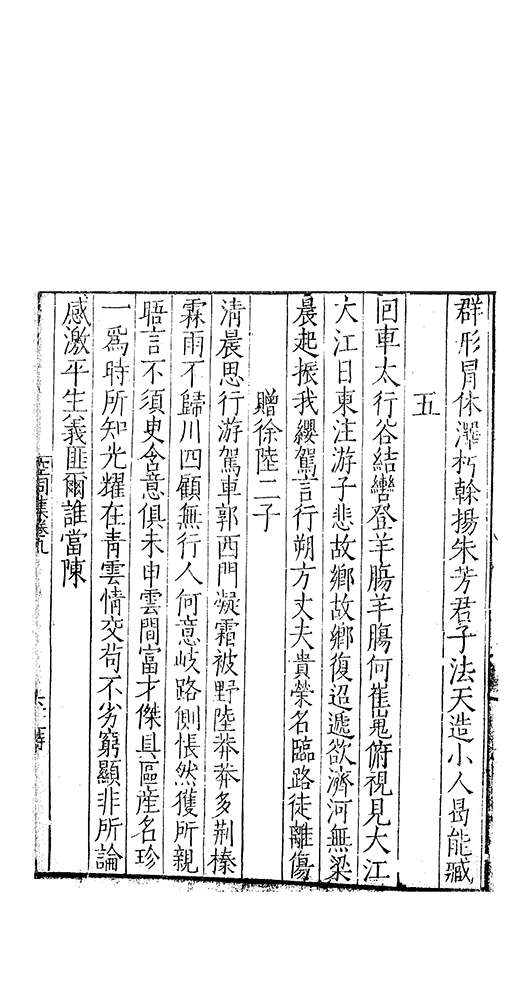 群形冒休澤朽榦揚朱芳君子法天造小人曷能臧
五
回車太行谷結轡登羊腸羊腸何崔嵬俯視見大江
大江日東注游子悲故鄉故鄉復迢遞欲濟河無梁
晨起振我纓駕言行朔方丈夫貴榮名臨路徒離傷
贈徐陸二子
清晨思行游駕車郭西門凝霜被野陸莽莽多荆榛
霖雨不歸川四顧無行人何意岐路側悵然獲所親
晤言不須臾含意俱未申雲間富才傑具區産名珍
一爲時所知光耀在青雲情交苟不劣窮顯非所論
感激平生義匪爾誰當陳
空同集卷九